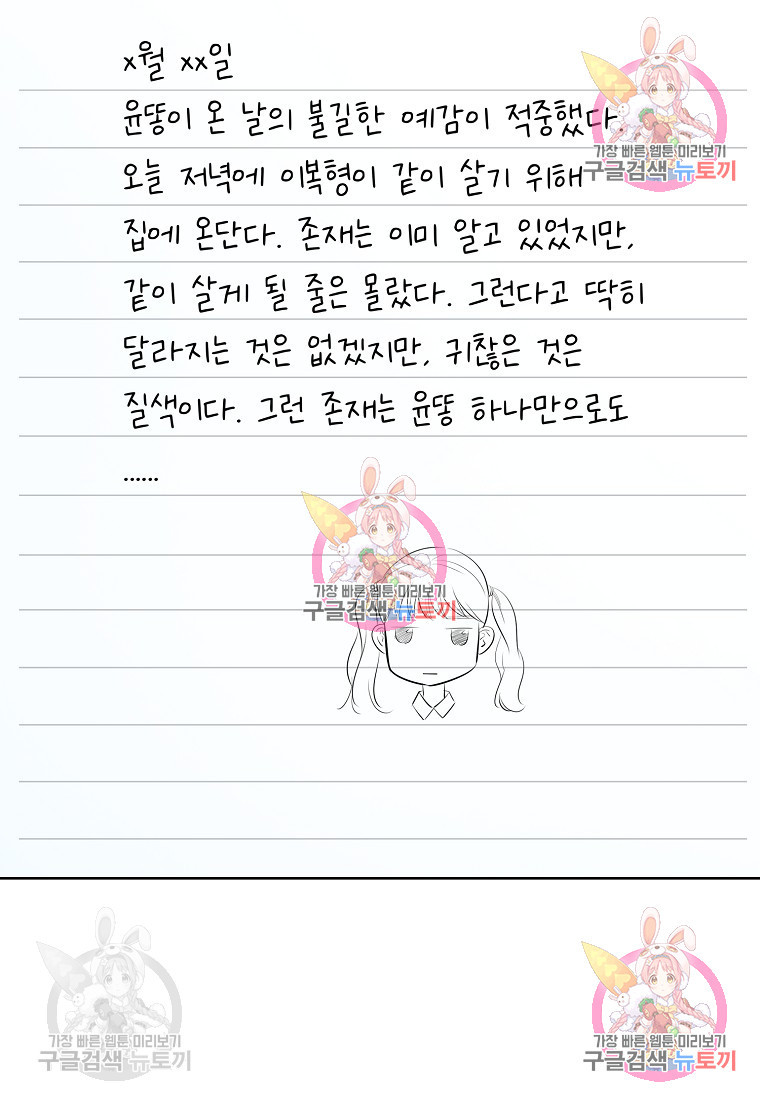 x월 xx일
윤똥이 온 날의 불길한 예감이 적중했다.
오늘 저녁에 이복형이 같이 살기 위해
집에 온단다. 존재는 이미 알고 있었지만,
같이 살게 될 줄은 몰랐다. 그런다고 딱히
달라지는 것은 없겠지만, 귀찮은 것은
질색이다. 그런 존재는 윤똥 하나만으로도
......
가장 빠른 웹툰 미리보기
구글검색 뉴토끼
가장 빠른 웹툰 미리보기
구글검색 뉴토끼
가장 빠른 웹툰 미리보기
구글검색 뉴토끼
가장 빠른 웹툰 미리보기
구글검색 뉴토끼